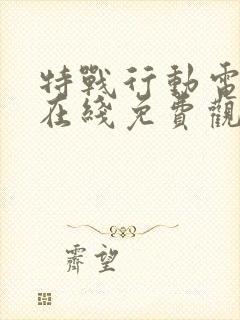 特戰行動電
在綫免費觀
霽望